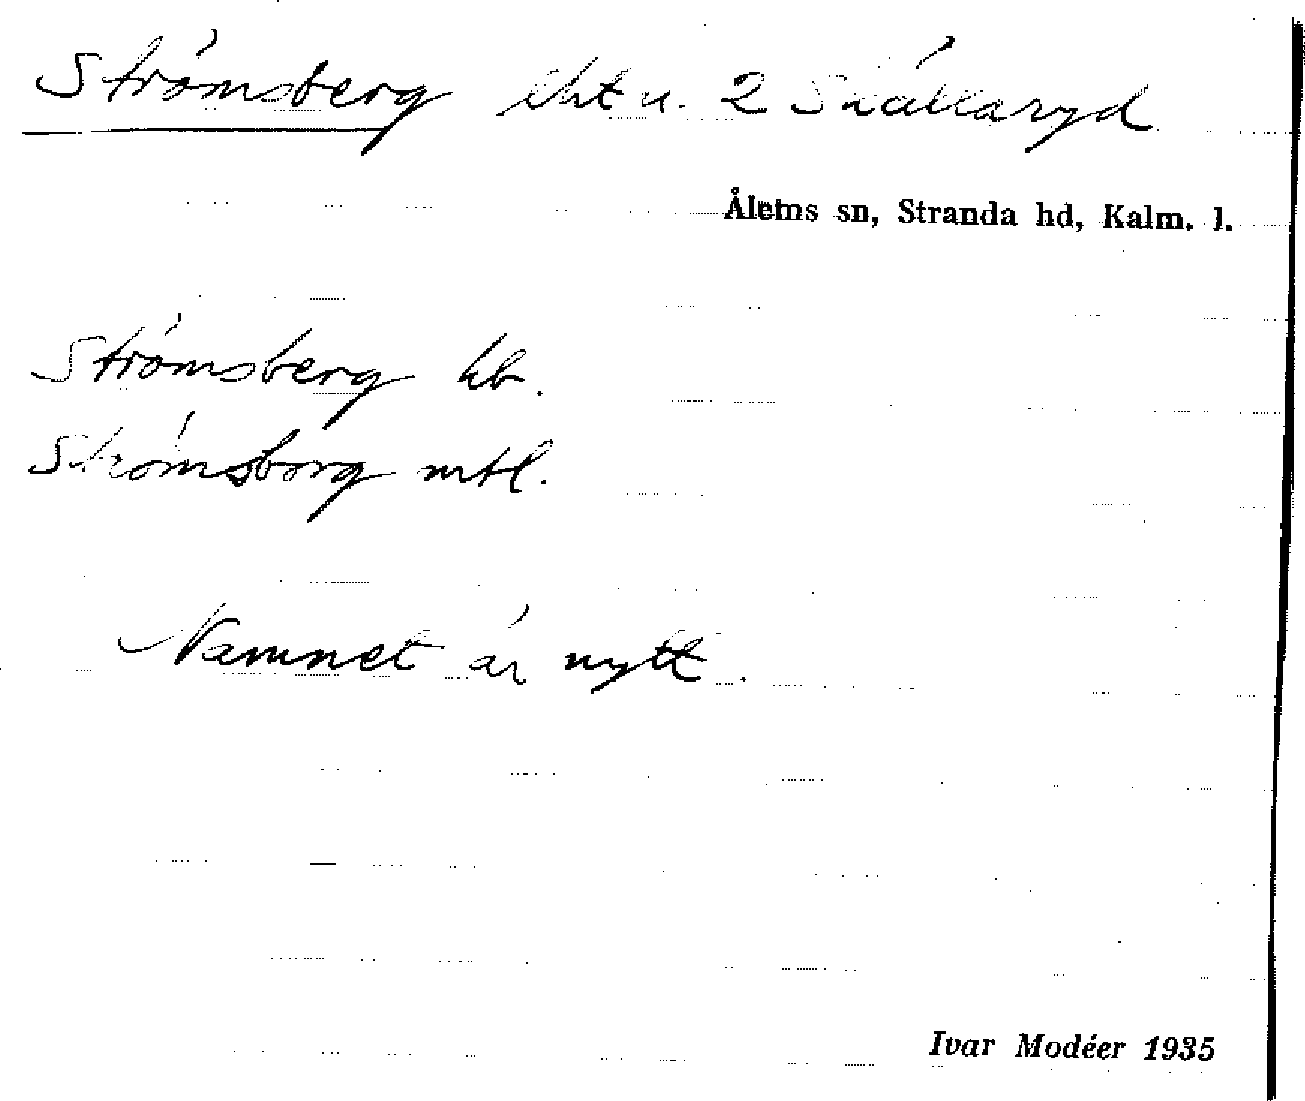 Strömsberg lht u. 2 Skällaryd
Ålems sn, Stranda hd, Kalm. l.
Strömsberg hb.
Strömsborg mtl.
Namnet är nytt.
Ivar Modéer 1935